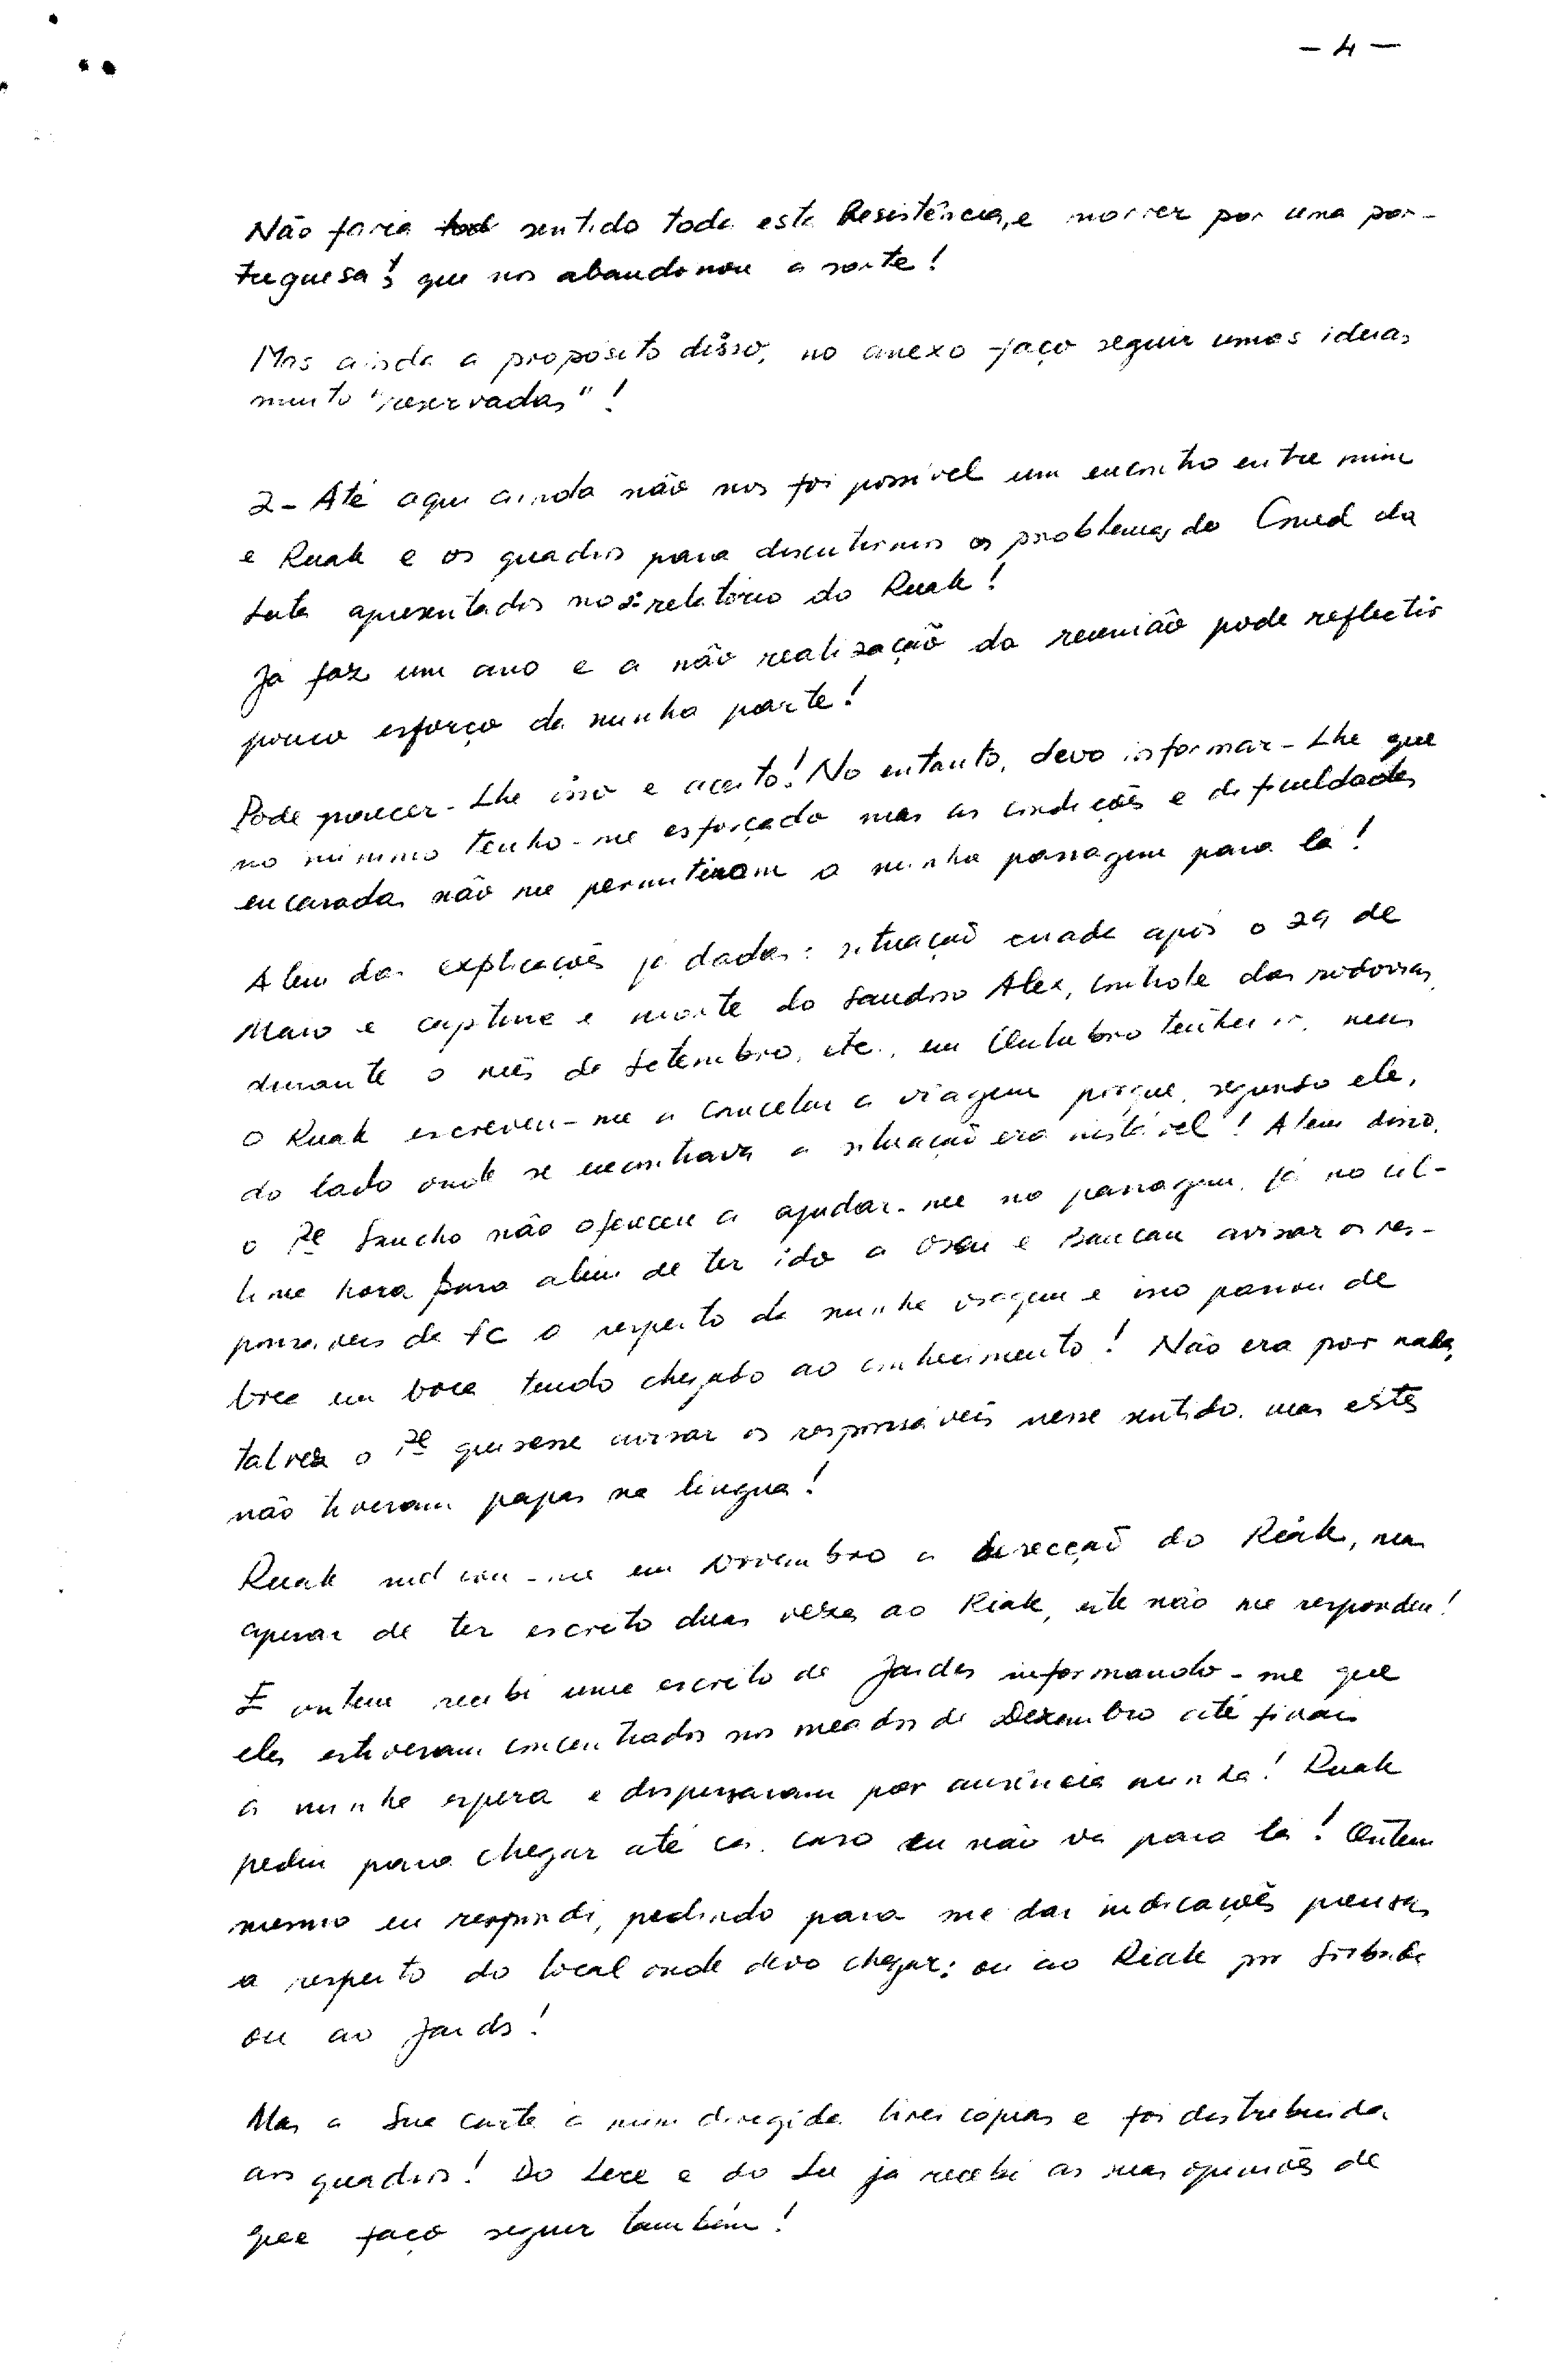 - 4 -
Não faria tod sentido toda esta Resistência, e morrer por uma por-
tuguesa! que nos abandonou a sorte!
Mas ainda a propósito disso, no anexo faço seguir umas ideias
muito "reservadas"!
2- Até aqui ainda não nos foi possível um encontro entre mim
e Ruak e os quadros para discutirmos os problemas do Cmed da
Luta apresentados no relatório do Ruak!
Já faz um ano e a não realização da reunião pode reflectir
pouco esforço da minha parte!
Pode parecer-Lhe isso e aceito! No entanto, devo informar-Lhe que
no mínimo tenho-me esforçado mas as condições e dificuldades
encaradas não me permitiram a minha passagem para lá!
Alem das explicações já dadas: situação criada após o 29 de
Maio e captura e morte do Saudoso Alex, controle das rodovias
durante o mês de Setembro, etc., em Outubro
O Ruak escreveu-me a cancelar a viagem porque, segundo ele,
do lado onde se encontrava a situação era instável! Alem disso,
o Pe Sancho não ofereceu a ajudar-me na passagem, já na úl-
tima hora para alem de ter ido a Ossu e Baucau avisar os res-
ponsáveis da FC a respeito da minha viagem e isso passou de
boca em boca tendo chegado ao conhecimento! Não era por nada,
talvez o Pe quisesse avisar os responsáveis nesse sentido, mas estes
não tiveram papas na lingua!
Ruak indicou-me em Novembro a direcção do Riak, mas
apesar de ter escrito duas vezes ao Riak, este não me respondeu!
E ontem recebi uma escrito de informando-me que
eles estiveram concentrados nos meados de Dezembro até finais
à minha espera e dispersaram por ausência minha! Ruak
pediu para chegar até cá, caso eu não vá para lá! Ontem
mesmo eu respondi, pedindo para me dar indicações precisas
a respeito do local onde devo chegar: ou ao Riak por
ou ao
Mas a Sua carta a mim dirigida tirei cópias e foi distribuida
aos quadros! Do Lere e do Lu já recebi as suas opiniões de
que faço seguir também!